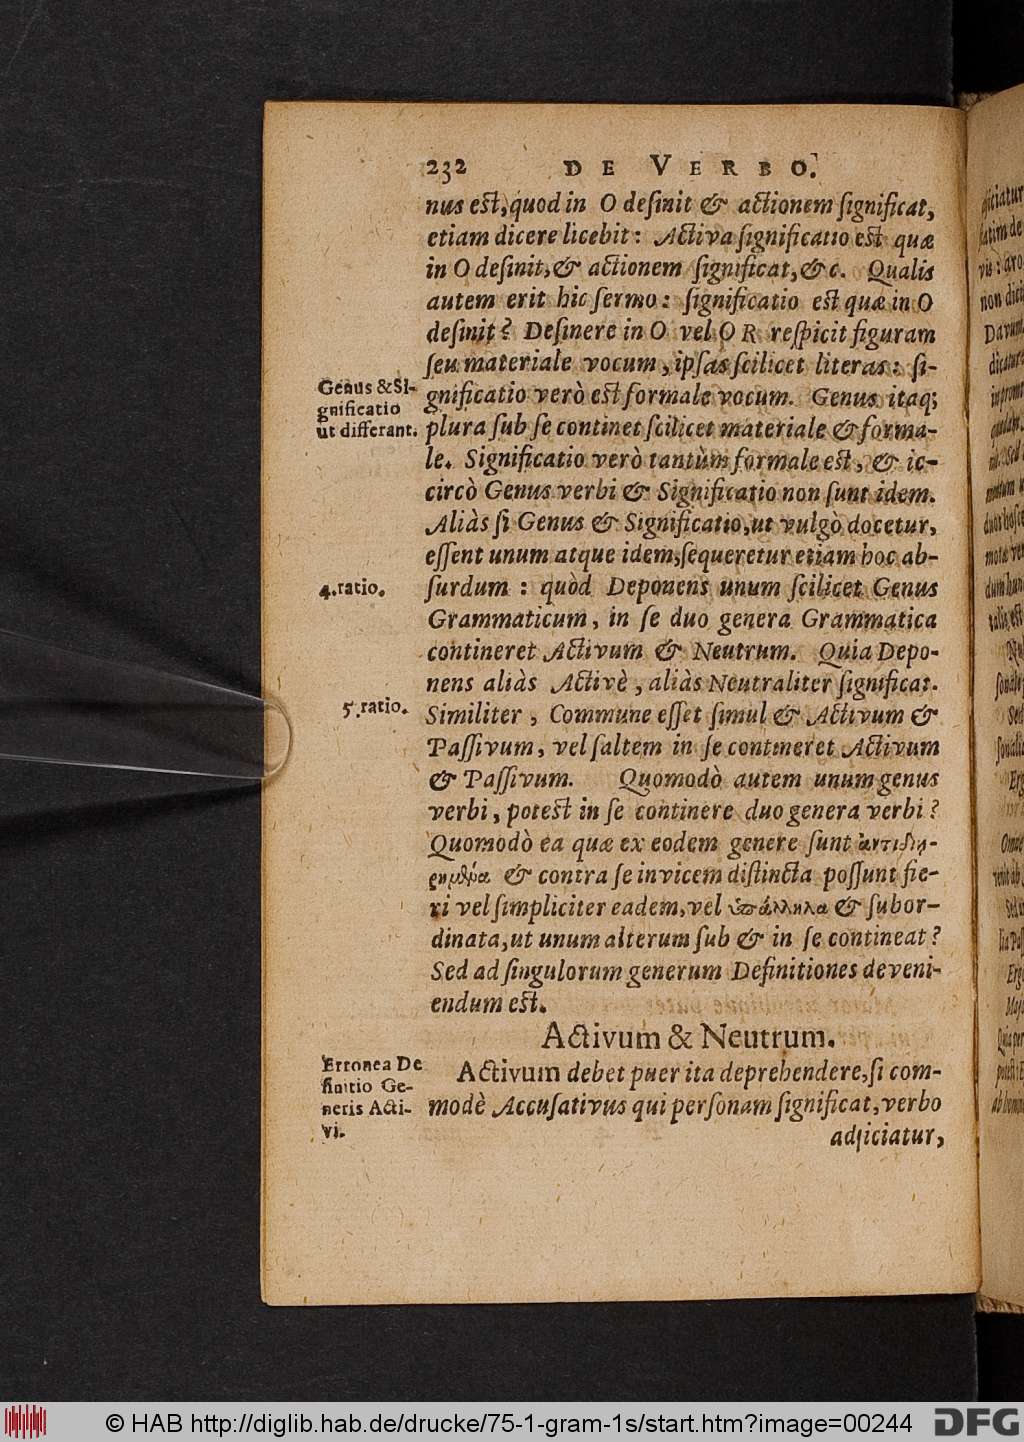 232 DE VERBO.
nus est, quod in O desinit & actionem significat,
etiam dicere licebit: Activa significatio est quæ
in O desinit, & actionem significat, &c. Qualis
autem erit hic sermo: significatio est quæ in O
desinit? Desinere in O vel OR respicit figuram
seu materiale vocum, ipsas scilicet literas: si-
Genus & Si-
gnificatio
ut differant.
gnificatio verò est formale vocum. Genus itaq;
plura sub se continet scilicet materiale & forma-
le. Significatio verò tantùm formale est, & ic-
circò Genus verbi & Significatio non sunt idem.
Aliàs si Genus & Significatio, ut vulgò docetur,
essent unum atque idem, sequeretur etiam hoc ab-
4. ratio.
surdum: quòd Deponens unum scilicet Genus
Grammaticum, in se duo genera Grammatica
contineret Activum & Neutrum. Quia Depo-
nens aliàs Activè, aliàs Neutraliter significat.
5. ratio.
Similiter, Commune esset simul & Activum &
Passivum, vel saltem in se contineret Activum
& Passivum. Quomodò autem unum genus
verbi, potest in se continere duo genera verbi?
Quomodò ea quæ ex eodem genere sunt ἀντιδιῃ-
ρημένα & contra se invicem distincta possunt fie-
ri vel simpliciter eadem, vel ὑπάλληλα & subor-
dinata, ut unum alterum sub & in se contineat?
Sed ad singulorum generum Definitiones deveni-
endum est.
Activum & Neutrum.
Erronea De
finitio Ge-
neris Acti-
vi.
Activum debet puer ita deprehendere, si com-
modè Accusativus qui personam significat, verbo
adjiciatur,
© HAB http://diglib.hab.de/drucke/75-1-gram-1s/start.htm?image=00244
DFG